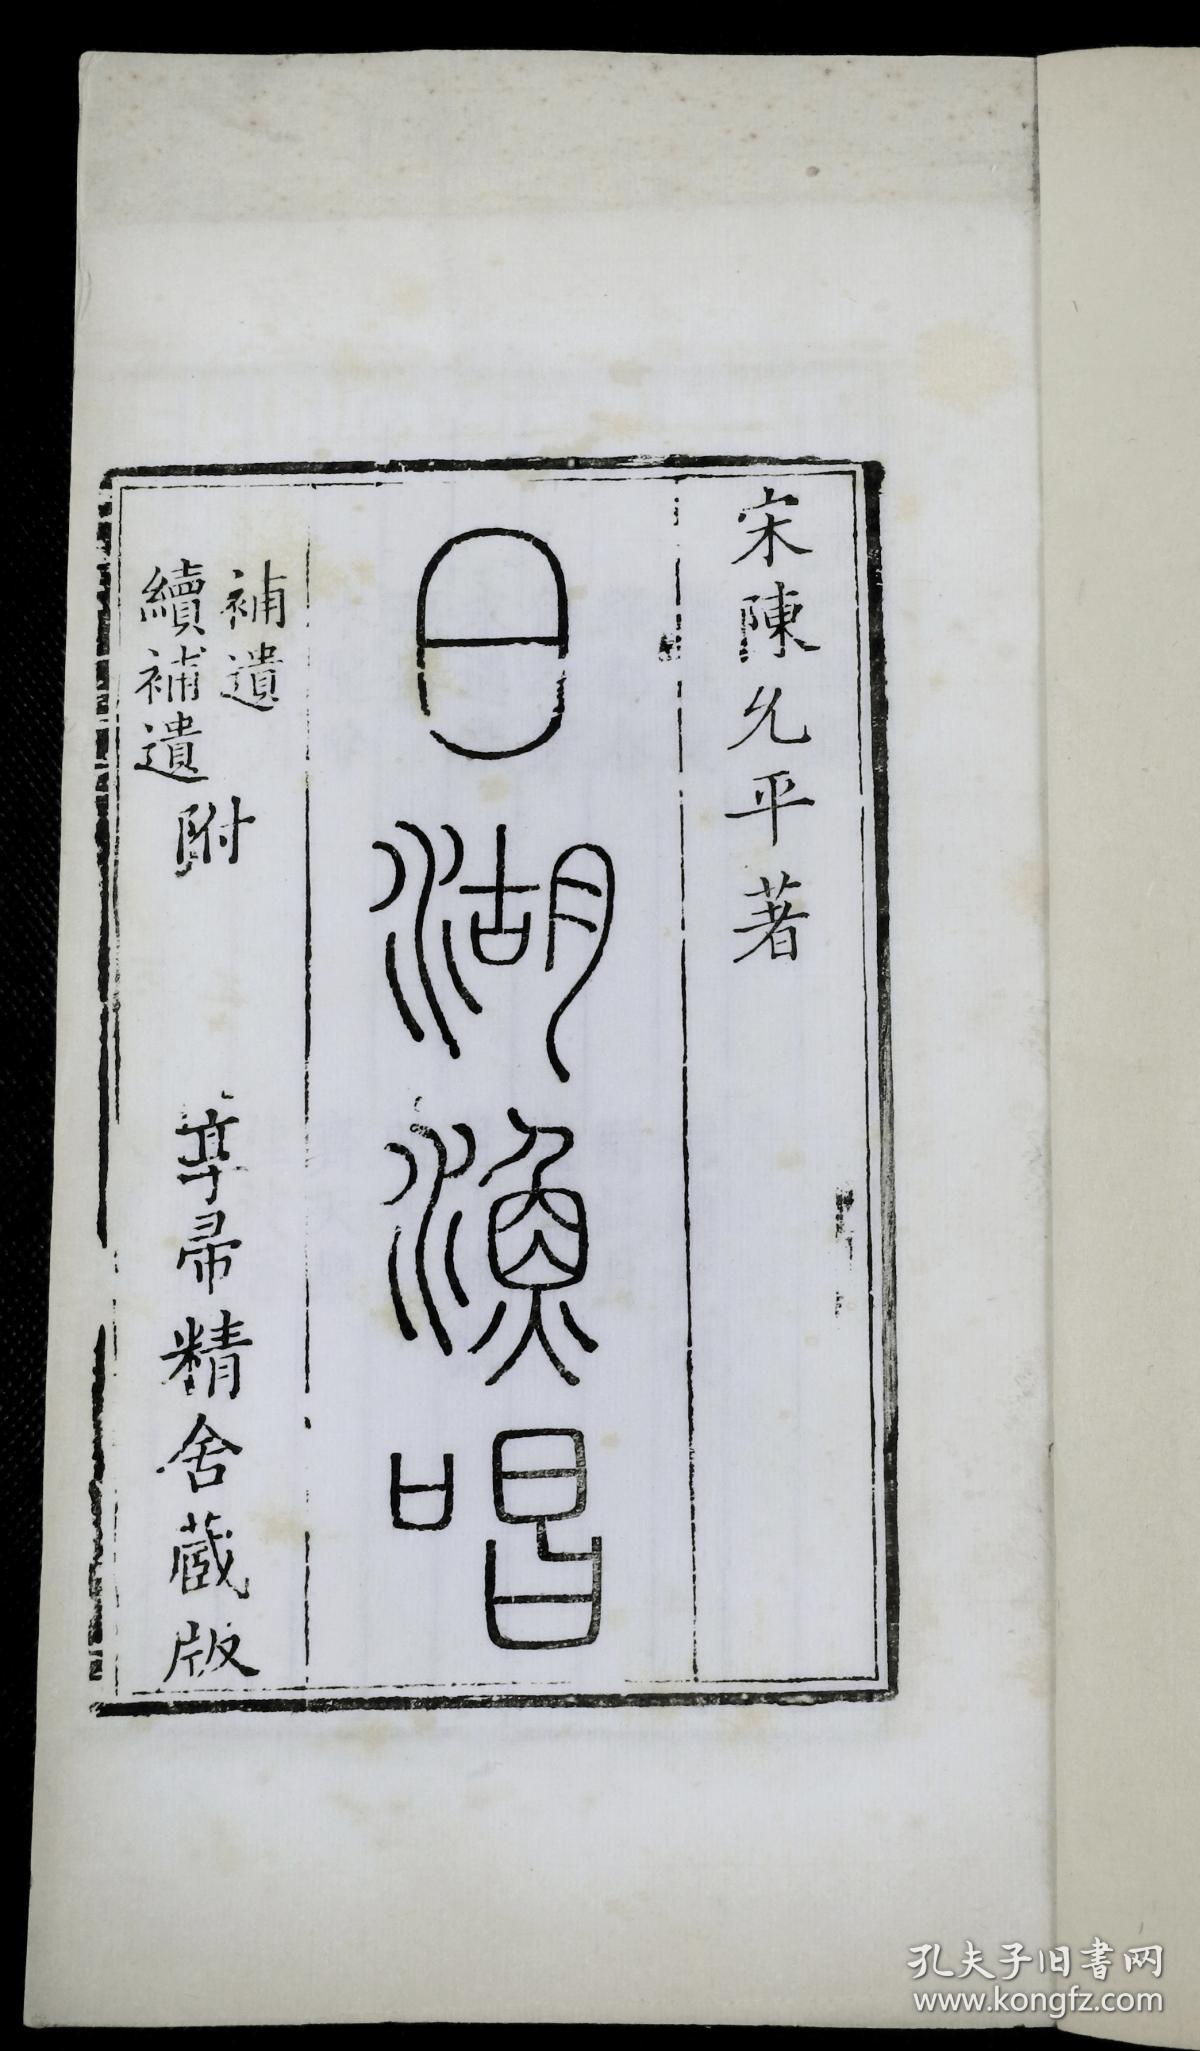 宋陳允平著
日湖漁唱
補遺
續補遺
附
專帚精舍藏版
孔夫子旧书网
www.kongfz.com